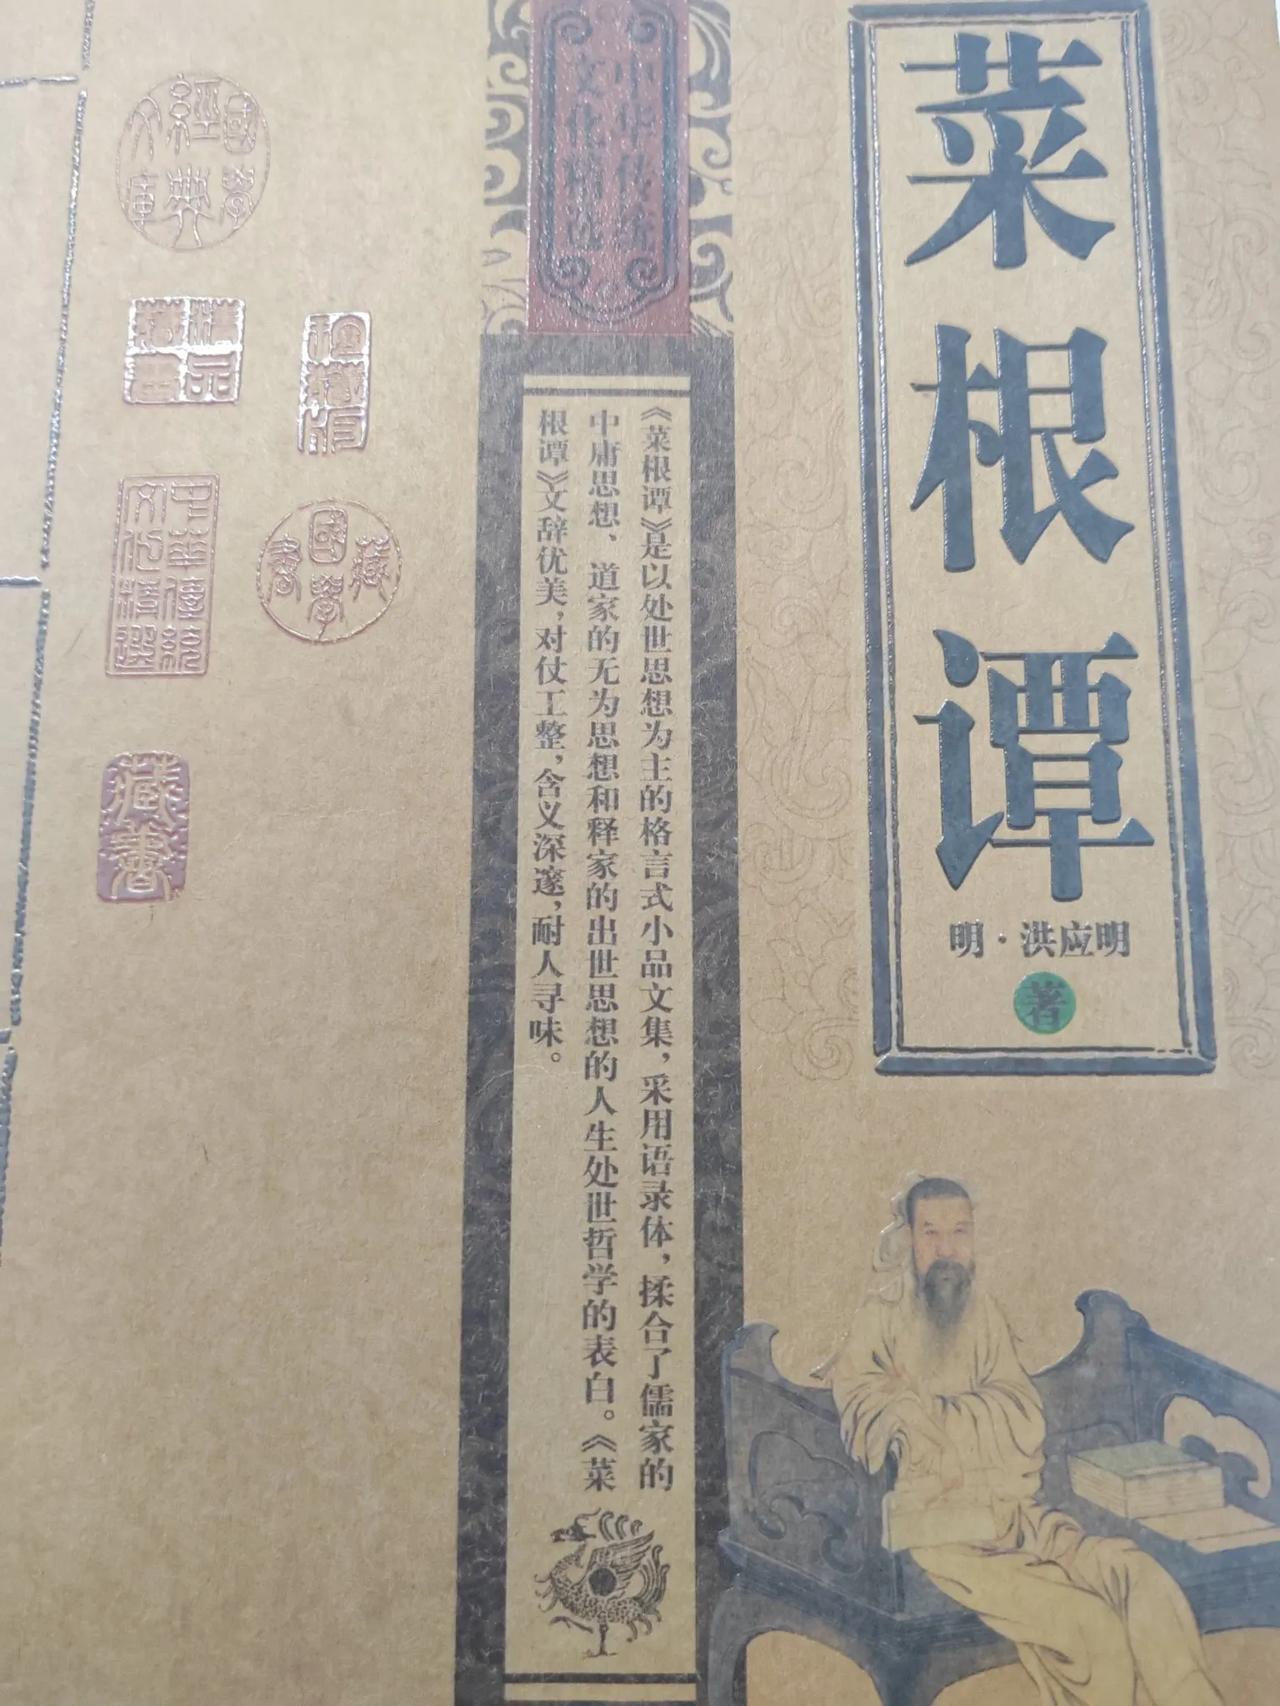 菜根谭
明·洪应明
著
中华传统
文化精选
《菜根谭》是以处世思想为主的格言式小品文集，采用语录体，揉合了儒家的
中庸思想、道家的无为思想和释家的出世思想的人生处世哲学的表白。《菜
根谭》文辞优美，对仗工整，含义深邃，耐人寻味。
國學
經典
文庫
精品
藏書
珍藏版
國學
藏書
中華傳統
文化精選
藏書